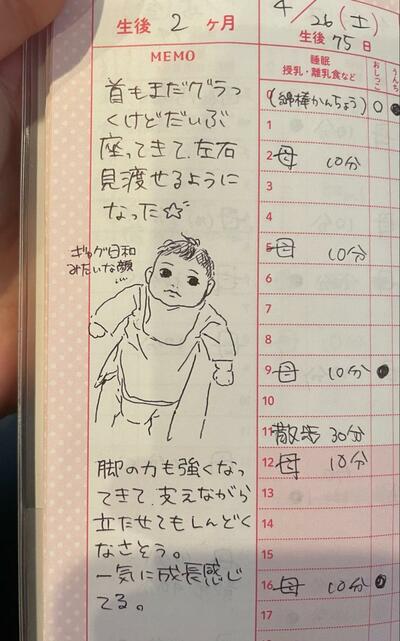 生後 2 ヶ月
4/26(土)
生後 75 日
MEMO
睡眠
授乳・離乳食など
おしっこ
うんち
首もまだグラっ
くけどだいぶ
座ってきて、左右
見渡せるように
なった☆
ギャグ日和
みたいな顔
脚の力も強くなっ
てきて、支えながら
立たせてもしんどく
なさそう。
一気に成長感じ
てる。
0 (綿棒かんちょう) ○ ●
1
2 母 10分
3
4
5 母 10分
6
7
8
9 母 10分 ●
10
11 散歩 30分
12 母 10分
13
14
15
16 母 10分 ●
17